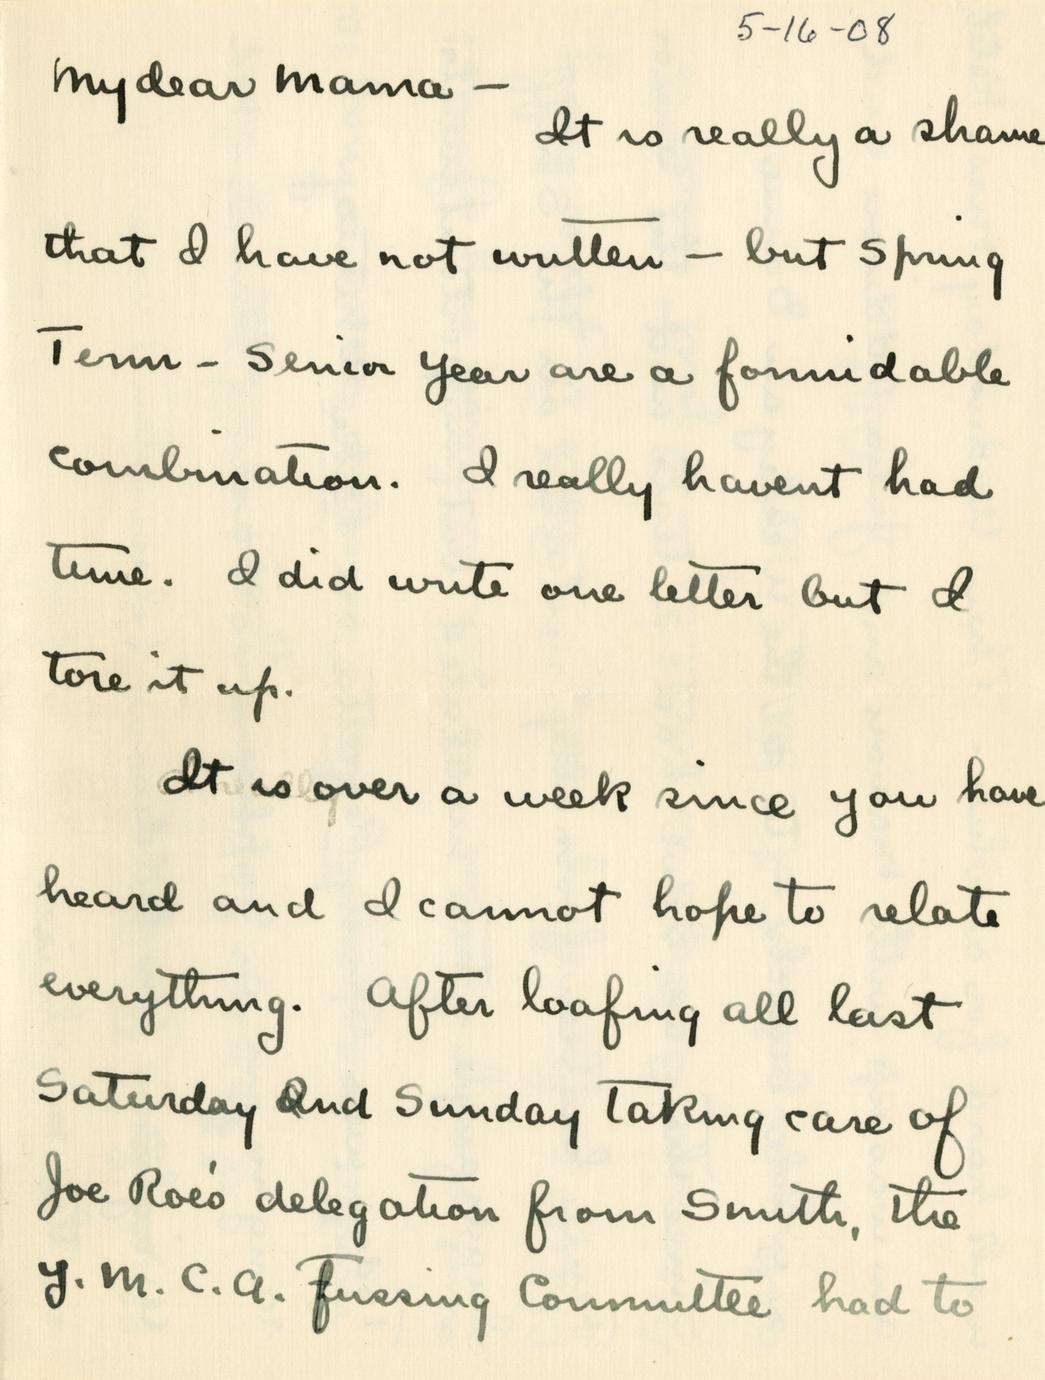 5-16-08
My dear Mama —
It is really a shame
that I have not written — but Spring
Term - Senior Year are a formidable
combination. I really havent had
time. I did write one letter but I
tore it up.
It is over a week since you have
heard and I cannot hope to relate
everything. After loafing all last
Saturday and Sunday taking care of
Joe Roe's delegation from Smith, the
Y. M. C. A. Fussing Committee had to